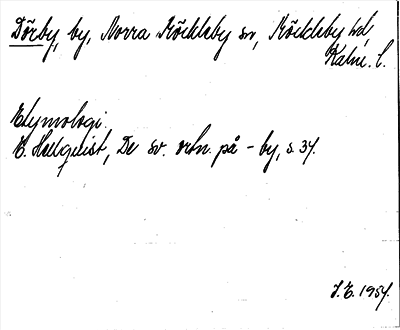 Dörby, by, Norra Möckleby sn, Möckleby hd,
Kalm. l.
Etymologi.
E. Hellquist, De sv. ortn. på -by, s. 34.
J. E. 1954.